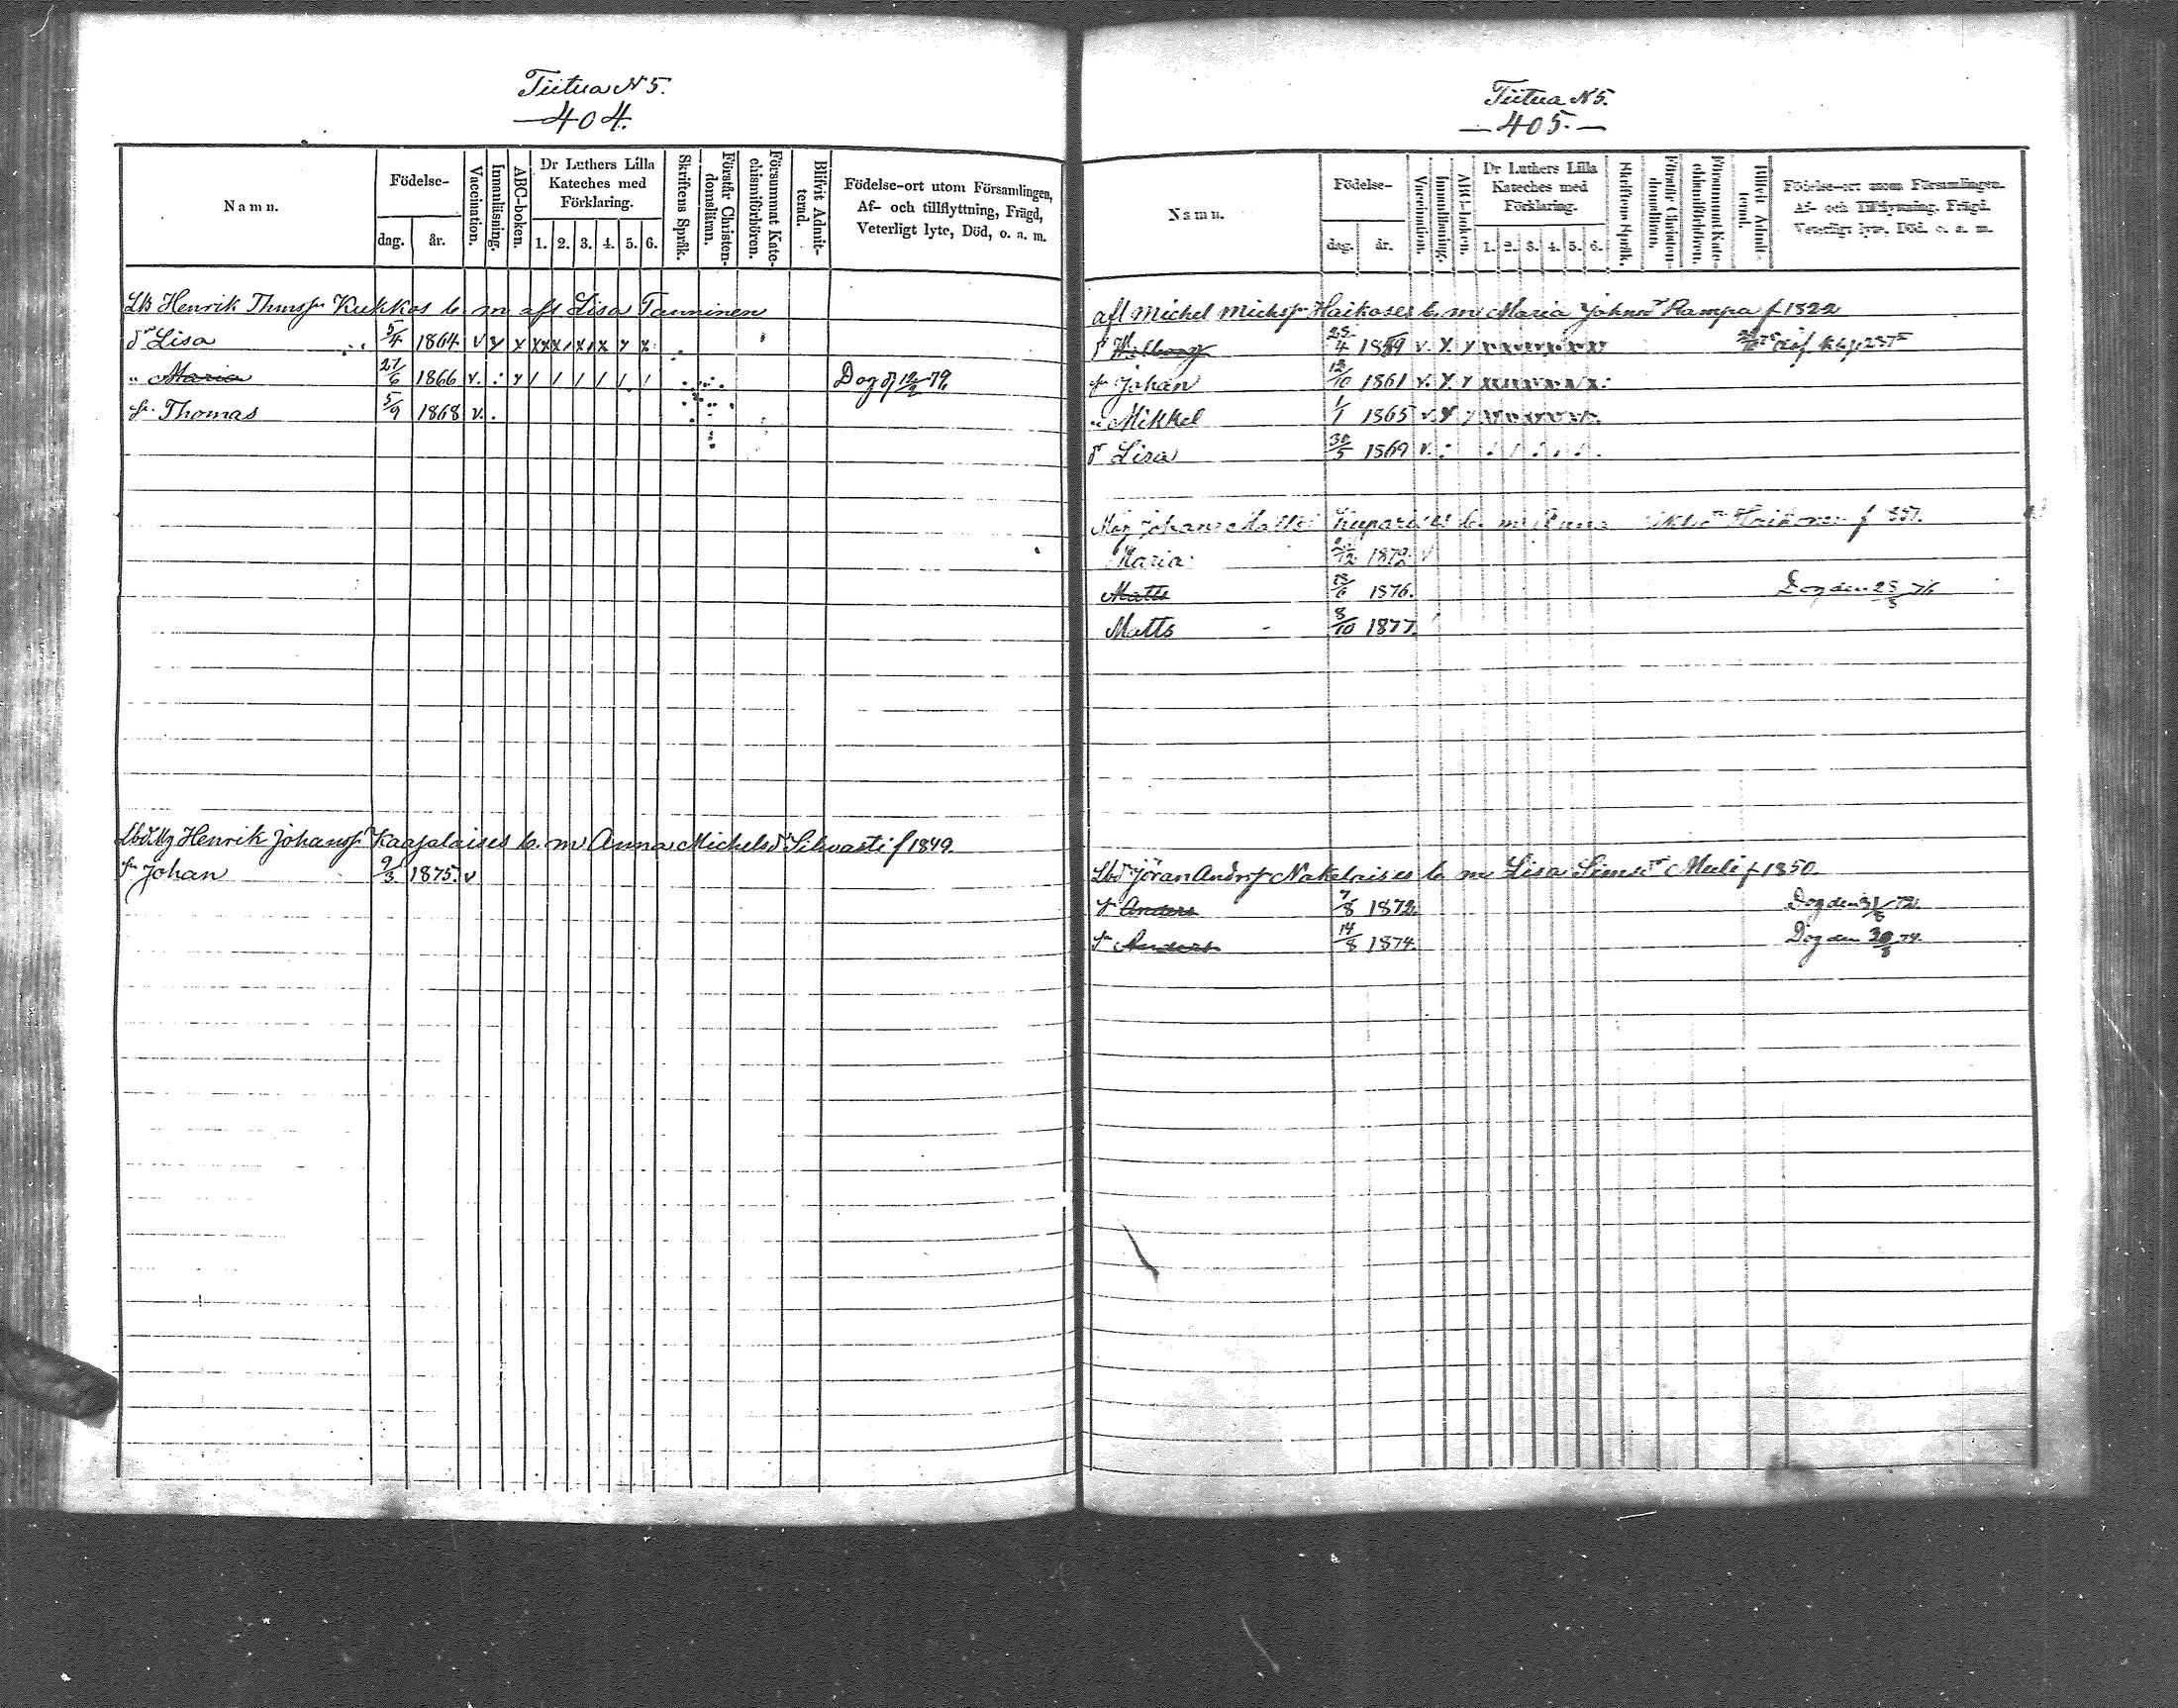 Tiitua N 5.
—404.
Namn.
Födelse-
dag.
år.
Vaccination.
Innanläsning.
ABC-boken.
Dr Luthers Lilla Kateches med Förklaring.
1. 2. 3. 4. 5. 6.
Skriftens Språk.
Förstår Christendomsläran.
Försummat Katechismiförhören.
Blifvit Admitterad.
Födelse-ort utom Församlingen,
Af- och tillflyttning, Frägd,
Veterligt lyte, Död, o. a. m.
Henrik Thmssn Kukkos b. m afl Lisa Tanninen
dr Lisa 5/4 1864 v
" Maria 27/6 1866 v. Dog d 12/2 79
sn Thomas 5/9 1868 v.
Henrik Johanssn Kaapalaises b. m Anna Michelsdr Sihvasti f 1849.
sn Johan 9/3 1875. v
Tiitua N 5.
—405.—
Namn.
Födelse-
dag.
år.
Vaccination.
Innanläsning.
ABC-boken.
Dr Luthers Lilla Kateches med Förklaring.
1. 2. 3. 4. 5. 6.
Skriftens Språk.
Förstår Christendomsläran.
Försummat Katechismiförhören.
Blifvit Admitterad.
Födelse-ort utom Församlingen.
Af- och Tillflyttning. Frägd.
Veterligt lyte, Död, o. a. m.
afl Michel Michssn Haikoses b. m Maria Johnsdr Rampa f 1822
dr 4 1859 v.
sn Johan 12/10 1861 v.
" Mikkel 1/1 1865 v
dr Lisa 30/5 1869 v.
Johan Matts b. m Anna Haikonen f
Maria 12 1872 v
Matts 6 1876. Dog den 25/8 76
Matts 8/10 1877.
Lbd Jöran Andrssn Nakelaises b. m Lisa Simsdr Muli f 1850
sn Anders 7/8 1872. Dog den 31/8 72.
sn Anders 14/8 1874. Dog den 30/8 74.